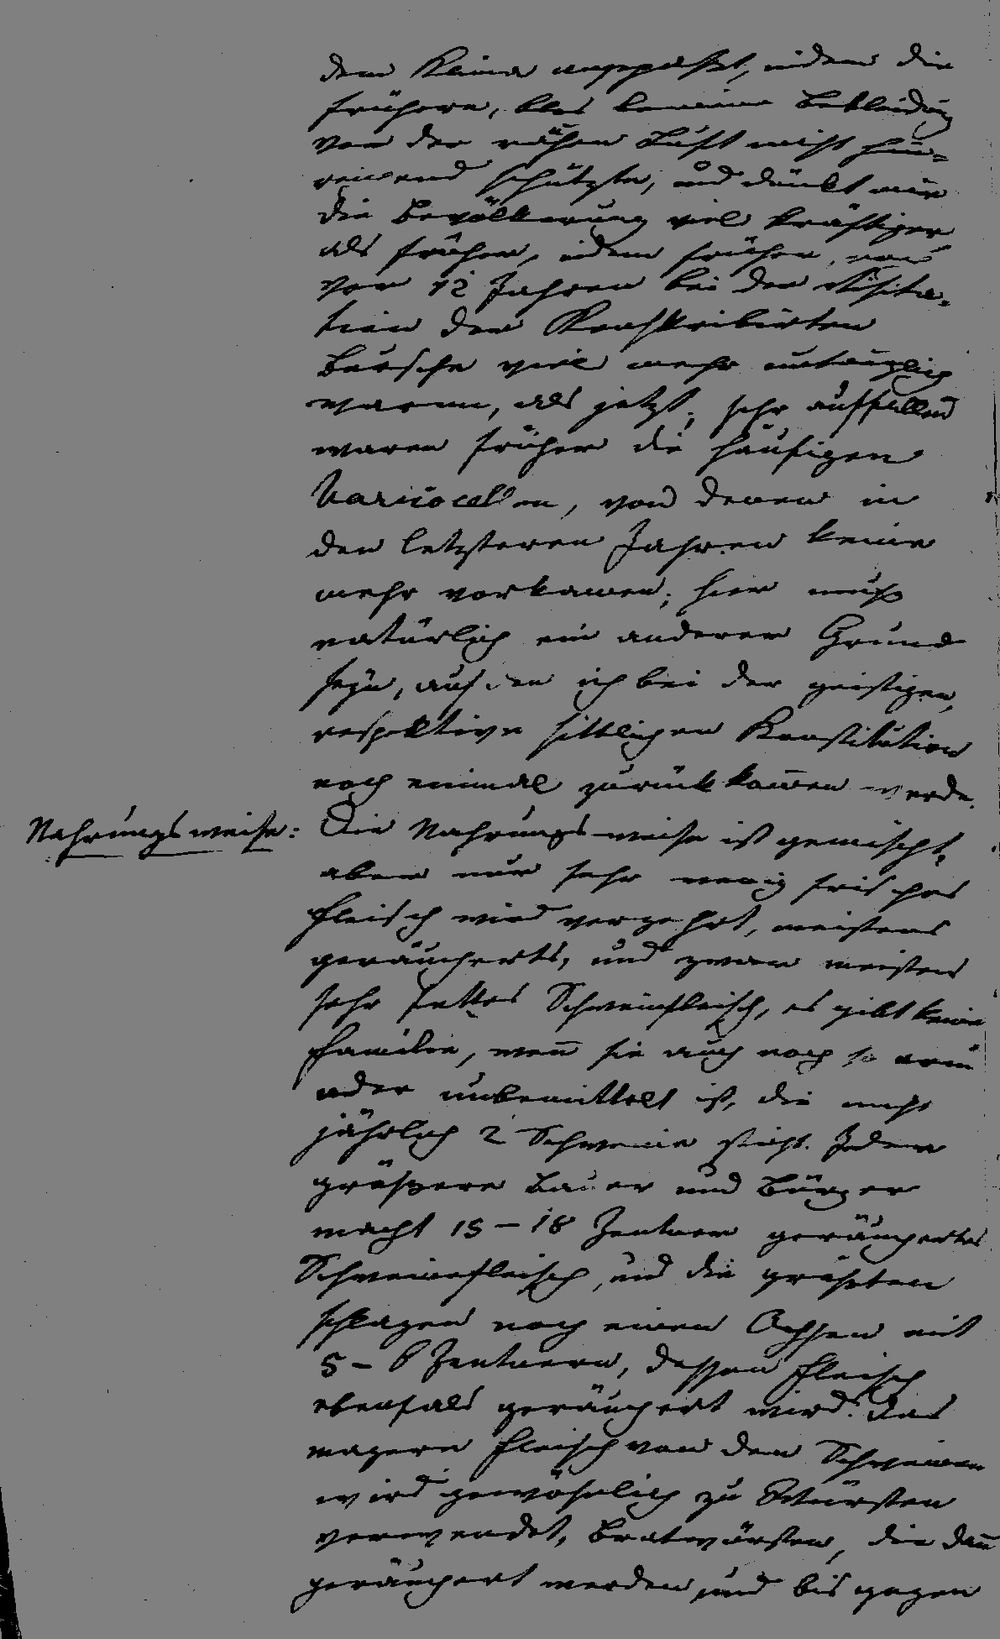 dem Klima angepaßt, indem die
frühere, blos leinene Bekleidung
vor der rauhen Luft nicht hin-
reichend schützte, und dünkt mir
die Bevölkerung viel kräftiger
als früher, indem früher, noch
vor 12 Jahren bei der Visita-
tion der Konskribirten
Bursche viel mehr untauglich
waren, als jetzt; sehr auffallend
waren früher die häufigen
Varicocellen, von denen in
den letzteren Jahren keine
mehr vorkamen; hier muß
natürlich ein anderer Grund
seyn, auf den ich bei der geistigen,
respektive sittlichen Konstitution
noch einmal zurückkom̅en werde.
Nahrungsweise: Die Nahrungsweise ist gemischt,
aber nur sehr wenig frisches
Fleisch wird verzehrt, meistens
geräucherts, und zwar meistens
sehr fettes Schweinfleisch, es gibt keine
Familie, wen̅ sie auch noch so arm
oder unbemittelt ist, die nicht
jährlich 2 Schweine sticht. Jeder
größere Bauer und Bürger
macht 15 – 18 Zentner geräuchertes
Schweinefleisch, und die größten
schlagen noch einen Ochsen mit
5 – 6 Zentnern, dessen Fleisch
ebenfals geräuchert wird. Das
magere Fleisch von den Schweinen
wird gewöhnlich zu Würsten
verwendet, Bratwürsten, die dan̅
geräuchert werden, und bis gegen